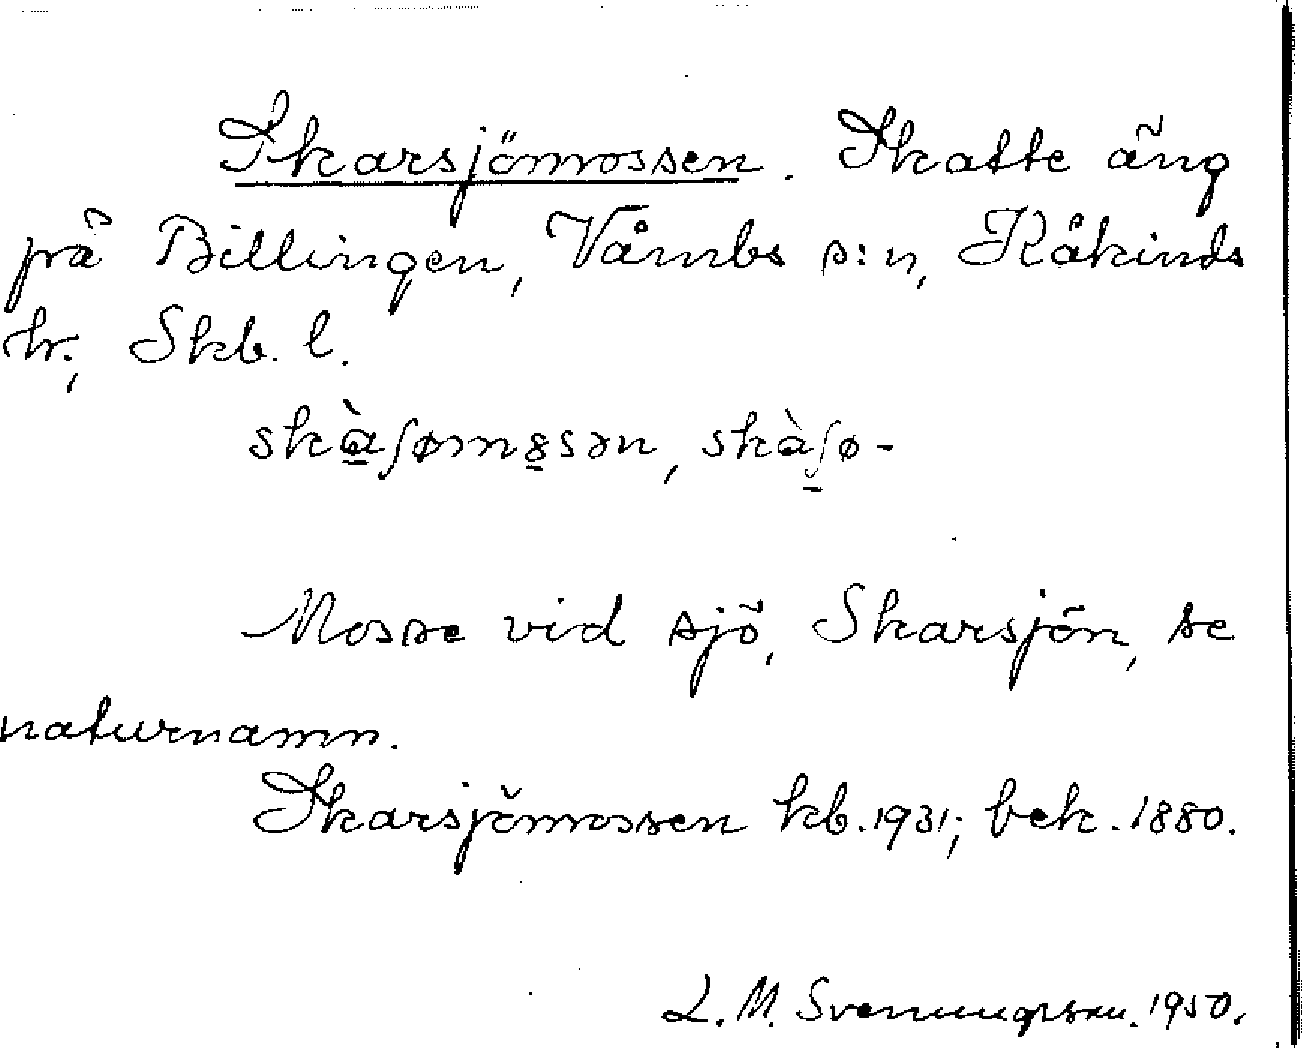 Skarsjömossen. Skatte äng
på Billingen, Våmbs s:n, Kåkinds
hr, Skb. l.
skà̱ʃømȣ̱sən, skàʃ̱ø-
Mosse vid sjö, Skarsjön, se
naturnamn.
Skarsjömossen kb. 1931; bek. 1880.
L. M. Svenungsson. 1950.